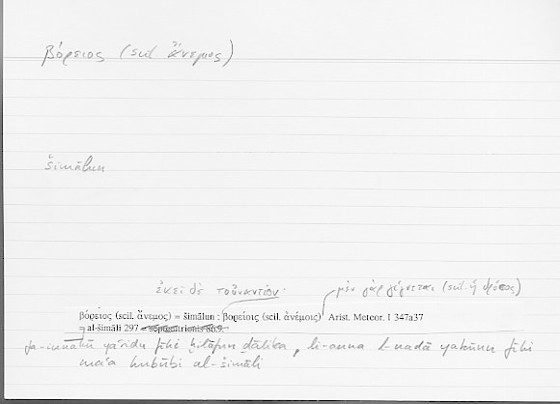 βόρειος (scil ἄνεμος)
šimālun
ἐκεῖ δὲ τοὐναντίον· μὲν γὰρ γίγνεται (scil ἡ δρόσος)
βόρειος (scil. ἄνεμος) = šimālun : βορείοις (scil. ἀνέμοις) Arist. Meteor. I 347a37
al-šimāli 297
fa-innahū yaʿriḍu fīhi ḫilāfun ḏālika, li-anna l-nadā yakūnu fīhi
maʿa hubūbi al-šimāli